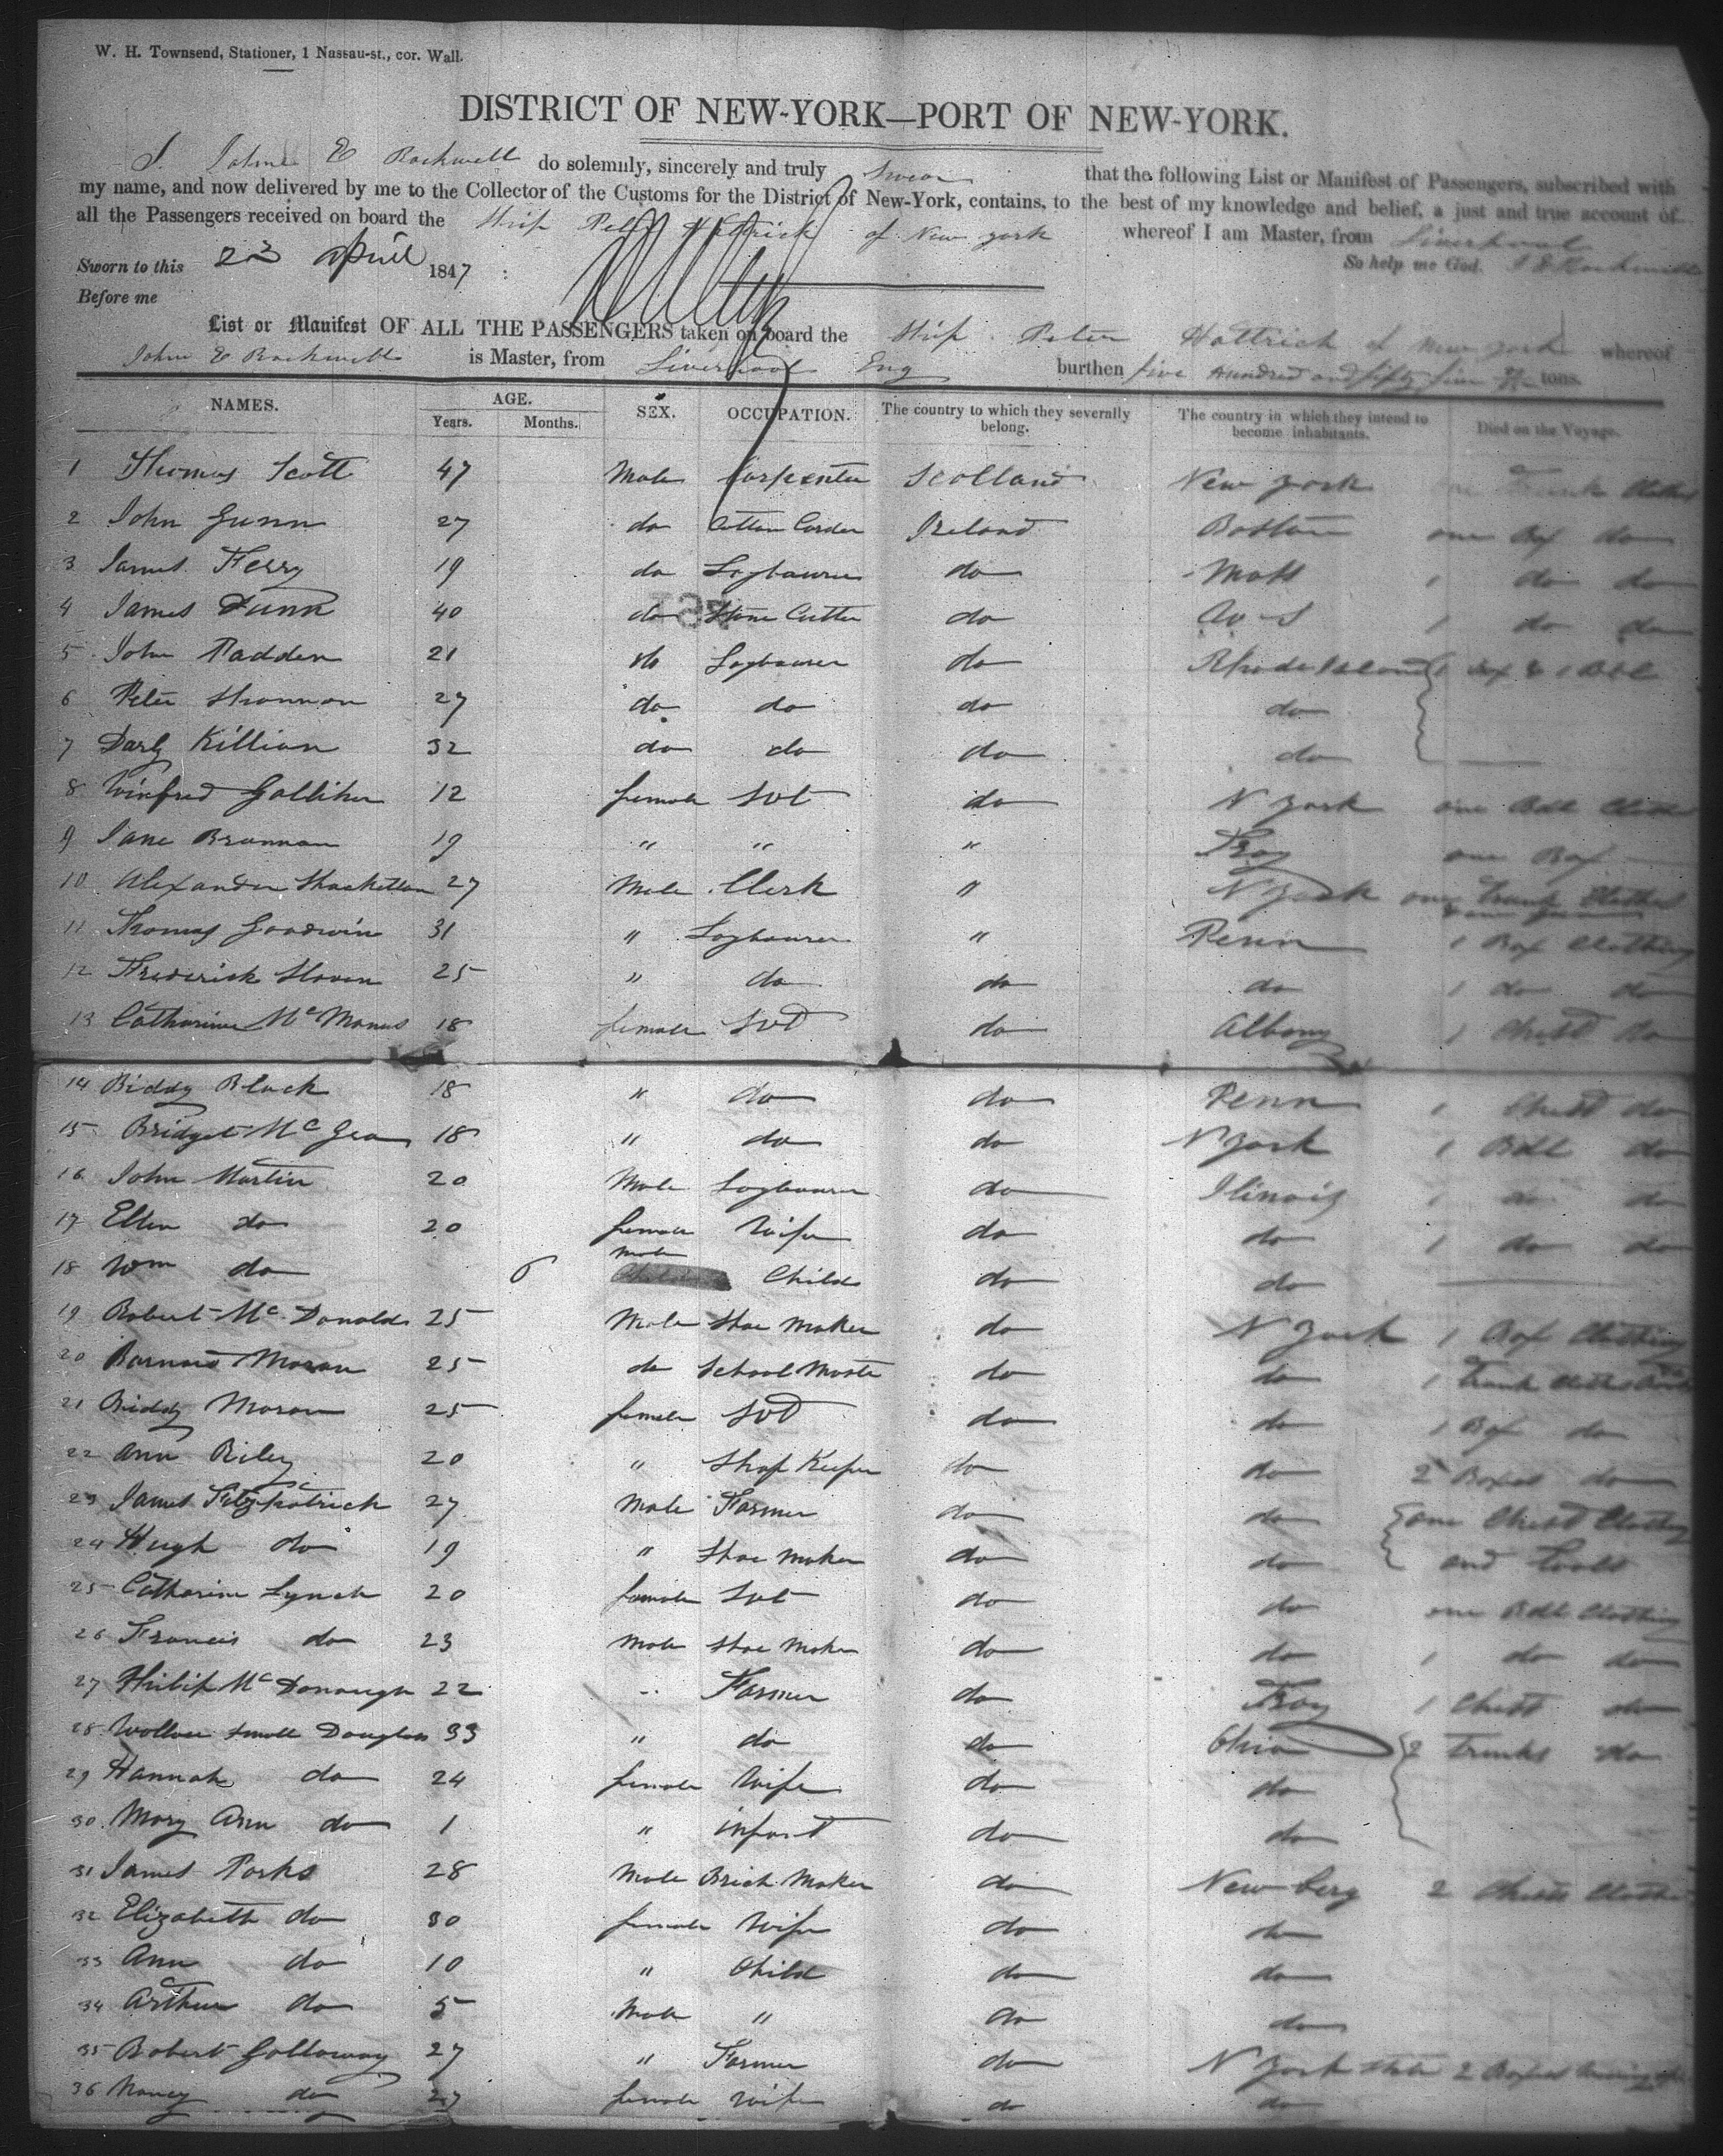 W. H. Townsend, Stationer, 1 Nassau-st., cor. Wall.
DISTRICT OF NEW-YORK—PORT OF NEW-YORK.
I, John E Rockwell do solemnly, sincerely and truly Swear that the following List or Manifest of Passengers, subscribed with
my name, and now delivered by me to the Collector of the Customs for the District of New-York, contains, to the best of my knowledge and belief, a just and true account of
all the Passengers received on board the Ship Peter Hattrick of New york whereof I am Master, from Liverpool
Sworn to this 23 April 1847 So help me God. J E Rockwell
Before me
List or Manifest OF ALL THE PASSENGERS taken on board the Ship Peter Hattrick of New york whereof
John E Rockwell is Master, from Liverpool Eng burthen five Hundred and fifty five tons.
NAMES. AGE. Years. Months. SEX. OCCUPATION. The country to which they severally belong. The country in which they intend to become inhabitants. Died on the Voyage.
1 Thomas Scott 47 Male Carpenter Scotland New york Trunk Clothes
2 John Gunn 27 do Cotton Carder Ireland Boston one Box do
3 James Ferry 19 do Laybourer do Mass 1 do do
4 James Dunn 40 do Stone Cutter do 1 do do
5 John Padden 21 do Laybourer do Rhode Island 1 Box & 1 Bdl
6 Peter Shannon 27 do do do do
7 Darby Killian 32 do do do do
8 Winfred Galliher 12 female Svt do N York one Bdl Clothes
9 Jane Brannan 19 " " " Troy one Box
10 Alexander Shackelton 27 Male Clerk " N York one Trunk Clothes
11 Thomas Goodwin 31 " Laybourer " Penn 1 Box Clothing
12 Frederick Slaven 25 " do do do 1 do do
13 Catharine McManus 18 female Svt do Albany 1 Chest do
14 Biddy Black 18 " do do Penn 1 Chest do
15 Bridget McGea 18 " do do N York 1 Bdl do
16 John Martin 20 Male Laybourer do Ilinois 1 do do
17 Ellen do 20 female Wife do do 1 do do
18 Wm do 6 male Child do do
19 Robert McDonald 25 Male Shoe Maker do N York 1 Box Clothing
20 Barnard Moran 25 do School Master do do 1 Trunk Clothes
21 Biddy Moran 25 female Svt do do 1 Box do
22 Ann Riley 20 " Shop Keeper do do 2 Boxes do
23 James Fitzpatrick 27 Male Farmer do do one Chest Clothing
24 Hugh do 19 " Shoe Maker do do and Tools
25 Catharine Lynch 20 female Svt do do one Bdl Clothing
26 Francis do 23 Male Shoe Maker do do 1 do do
27 Philip McDonaugh 22 " Farmer do Troy 1 Chest do
28 Wallace Small Douglass 33 " do do Ohio 2 Trunks do
29 Hannah do 24 female Wife do do
30 Mary Ann do 1 " infant do do
31 James Parks 28 Male Brick Maker do Newberg 2 Chests Clothes
32 Elizabeth do 30 female Wife do do
33 Ann do 10 " Child do do
34 Arthur do 5 Male " do do
35 Robert Galloway 27 " Farmer do N York State 2 Boxes
36 Nancy do 27 female Wife do do